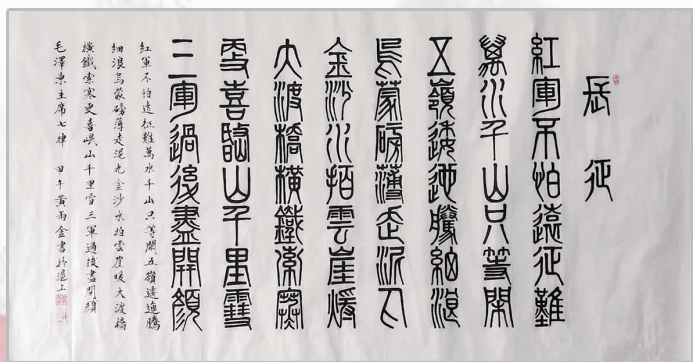 長征
紅軍不怕遠征難
萬水千山只等閑
五嶺逶迤騰細浪
烏蒙磅薄走泥丸
金沙水拍雲崖暖
大渡橋橫鐵索寒
更喜岷山千里雪
三軍過後盡開顏
紅軍不怕遠征難萬水千山只等閑五嶺逶迤騰
細浪烏蒙磅薄走泥丸金沙水拍雲崖暖大渡橋
橫鐵索寒更喜岷山千里雪三軍過後盡開顏
毛澤東主席七律 甲午黃雨金書於滬上